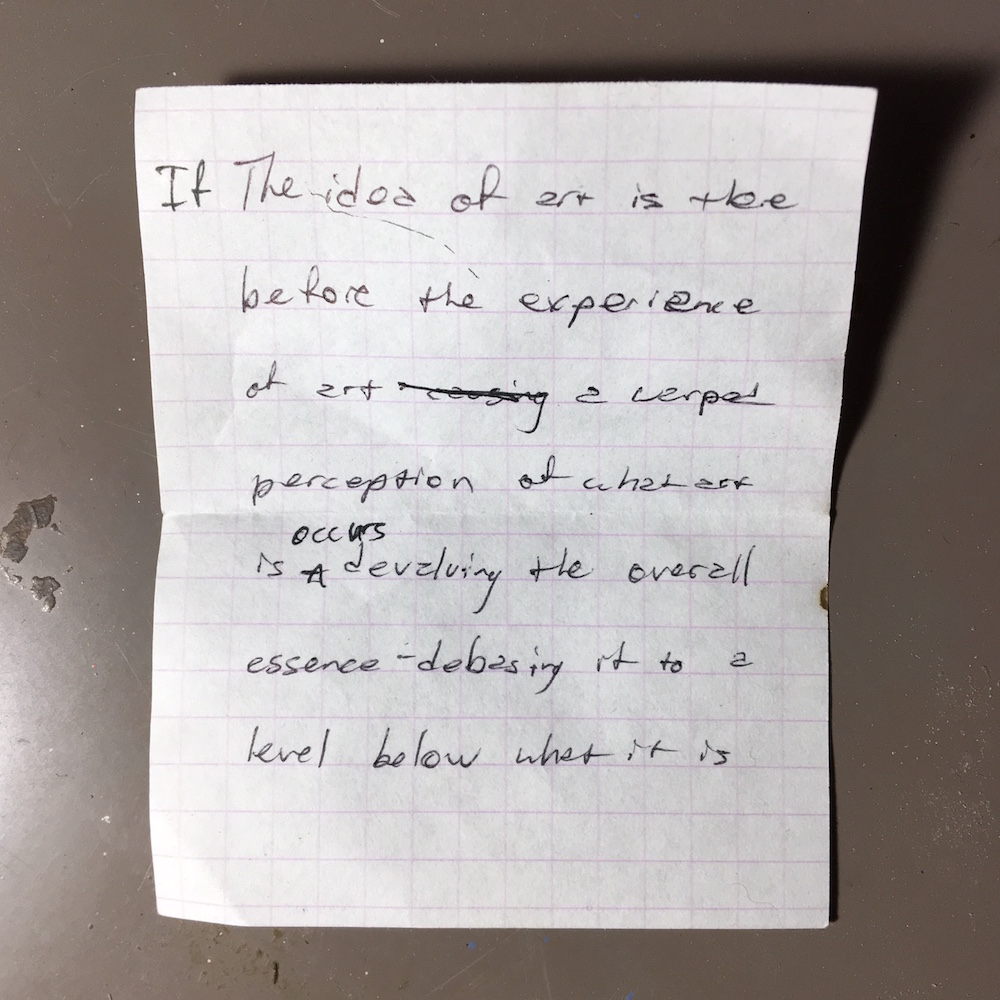 If The idea of art is there
before the experience
of art a warped
perception of what art
occurs
is devaluing the overall
essence - debasing it to a
level below what it is